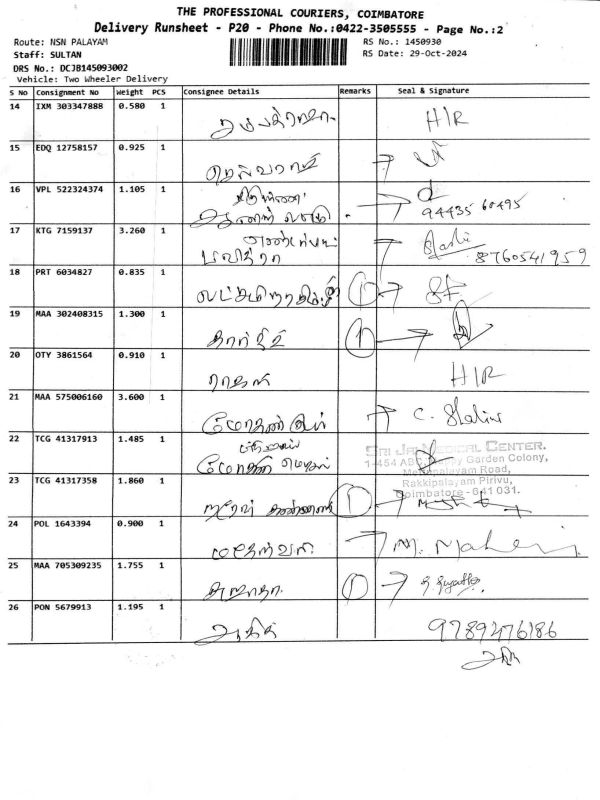 THE PROFESSIONAL COURIERS, COIMBATORE
Delivery Runsheet - P20 - Phone No.:0422-3505555 - Page No.:2
Route: NSN PALAYAM RS No.: 1450930
Staff: SULTAN RS Date: 29-Oct-2024
DRS No.: DCJB145093002
Vehicle: Two Wheeler Delivery
S No Consignment No Weight PCS Consignee Details Remarks Seal & Signature
14 IXM 303347888 0.580 1
H/R
15 EDQ 12758157 0.925 1
செல்வராஜ்
16 VPL 522324374 1.105 1
94435 60495
17 KTG 7159137 3.260 1
பவித்ரா 8760541959
18 PRT 6034827 0.835 1
லட்சுமிநரசிம் 1
19 MAA 302408315 1.300 1
கார்த்தி 1
20 OTY 3861564 0.910 1
H/R
21 MAA 575006160 3.600 1
C. Stalin
22 TCG 41317913 1.485 1
SRI JAI MEDICAL CENTER.
Garden Colony,
Road,
23 TCG 41317358 1.860 1 Rakkipalayam Pirivu,
Coimbatore - 641 031.
கண்ணன் 1
24 POL 1643394 0.900 1
மகேஸ்வரி M.
25 MAA 705309235 1.755 1
சுஜாதா 1
26 PON 5679913 1.195 1
9789476186